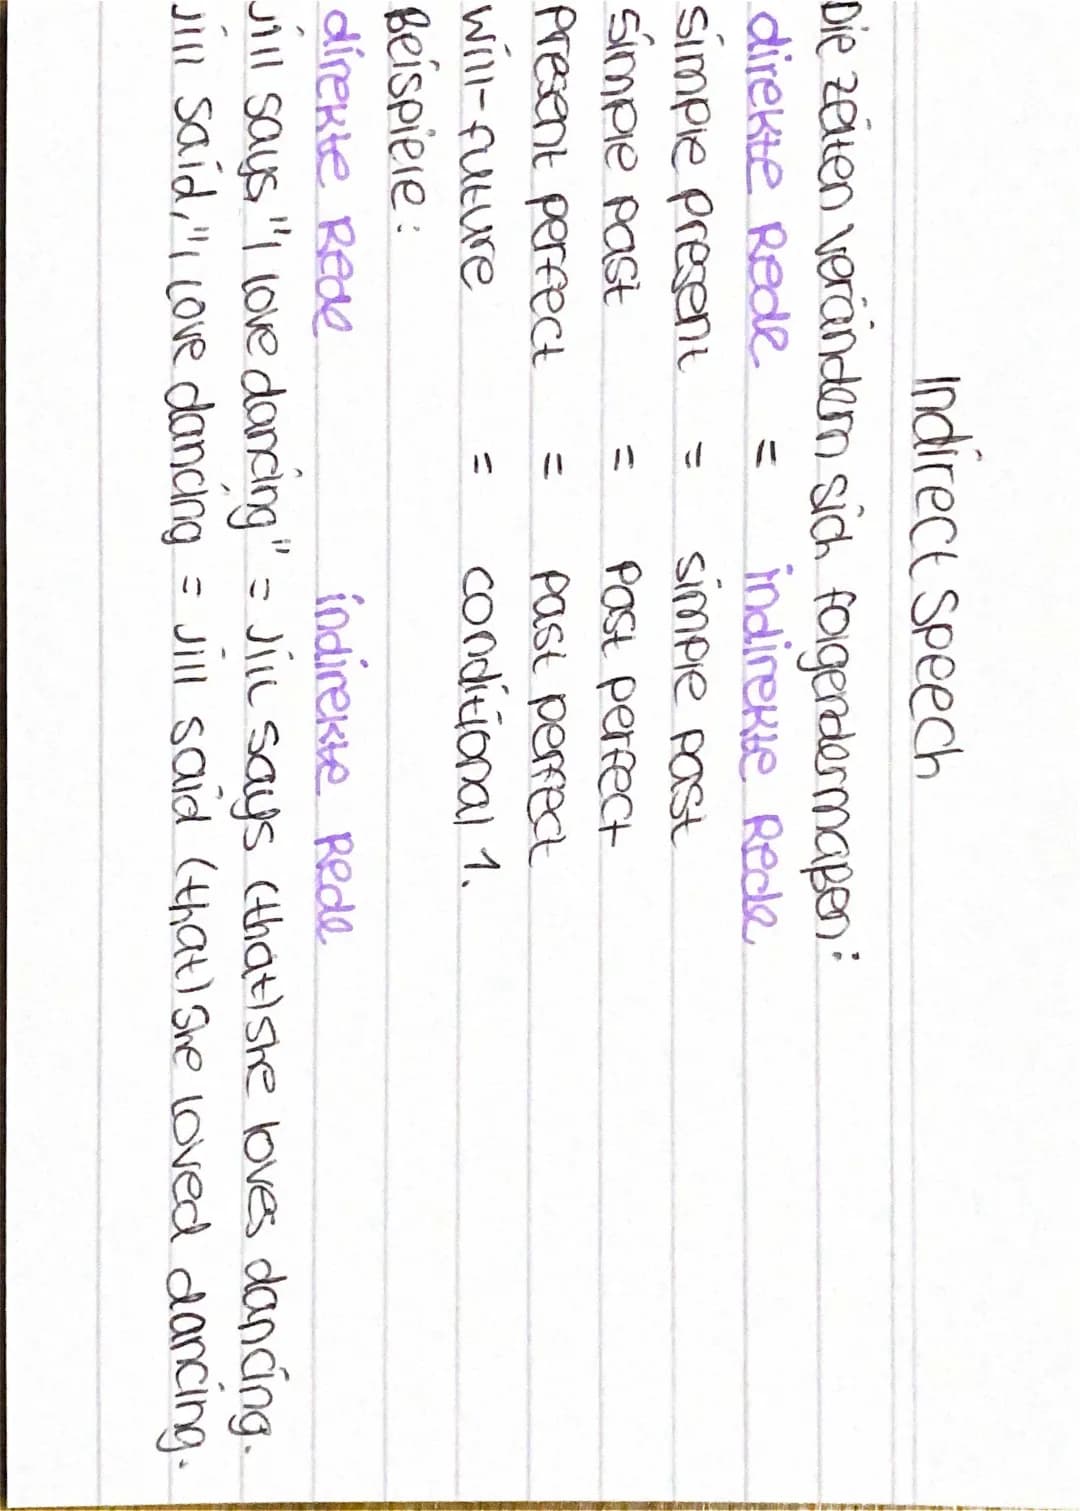 Indirect Speech
Die Zeiten verändern sich folgendermaßen:
direkte Rede = indirekte Rede
simple present = simple past
simple past = Past perfect
Present perfect = past perfect
will-future = conditional 1.
Beispiele:
direkte Rede indirekte Rede
Jill says, "I love dancing" = Jill says (that) she loves dancing.
Jill said, "I love dancing = Jill said (that) she loved dancing.